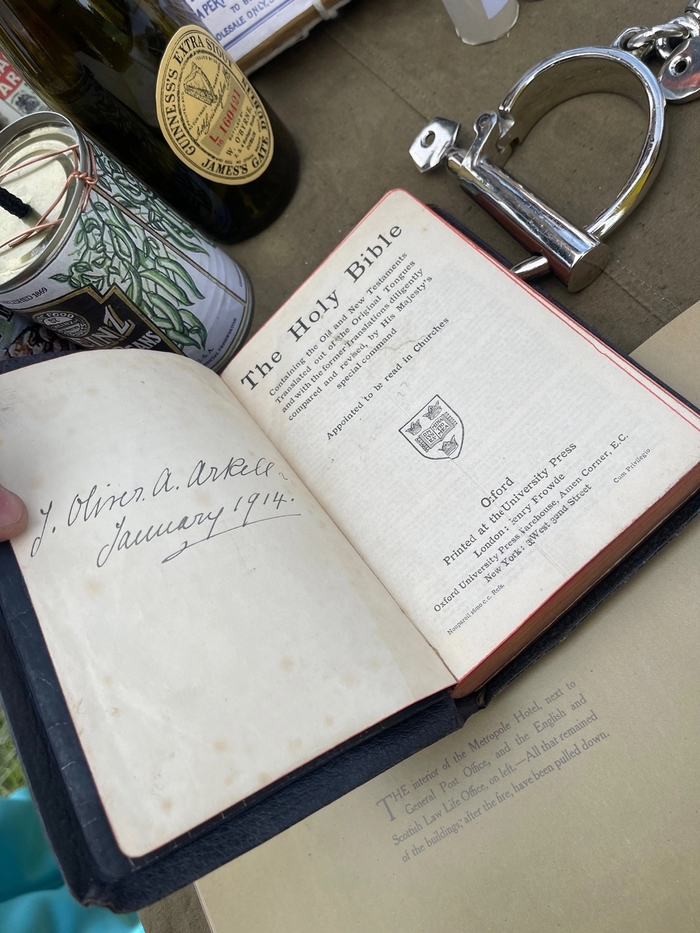 GUINNESS'S EXTRA STOUT
JAMES'S GATE
The Holy Bible
Containing the Old and New Testaments
Translated out of the Original Tongues
and with the former Translations diligently
compared and revised, by His Majesty's
special command
Appointed to be read in Churches
Oxford
Printed at the University Press
London: Henry Frowde
Oxford University Press Warehouse, Amen Corner, E.C.
New York: West 32nd Street
Cum Privilegio
Nonpareil c.c. Refs.
J. Oliver. A. Arkell
January 1914.
THE interior of the Metropole Hotel, next to
General Post Office, and the English and
Scottish Law Life Office, on left.—All that remained
of the buildings, after the fire, have been pulled down.